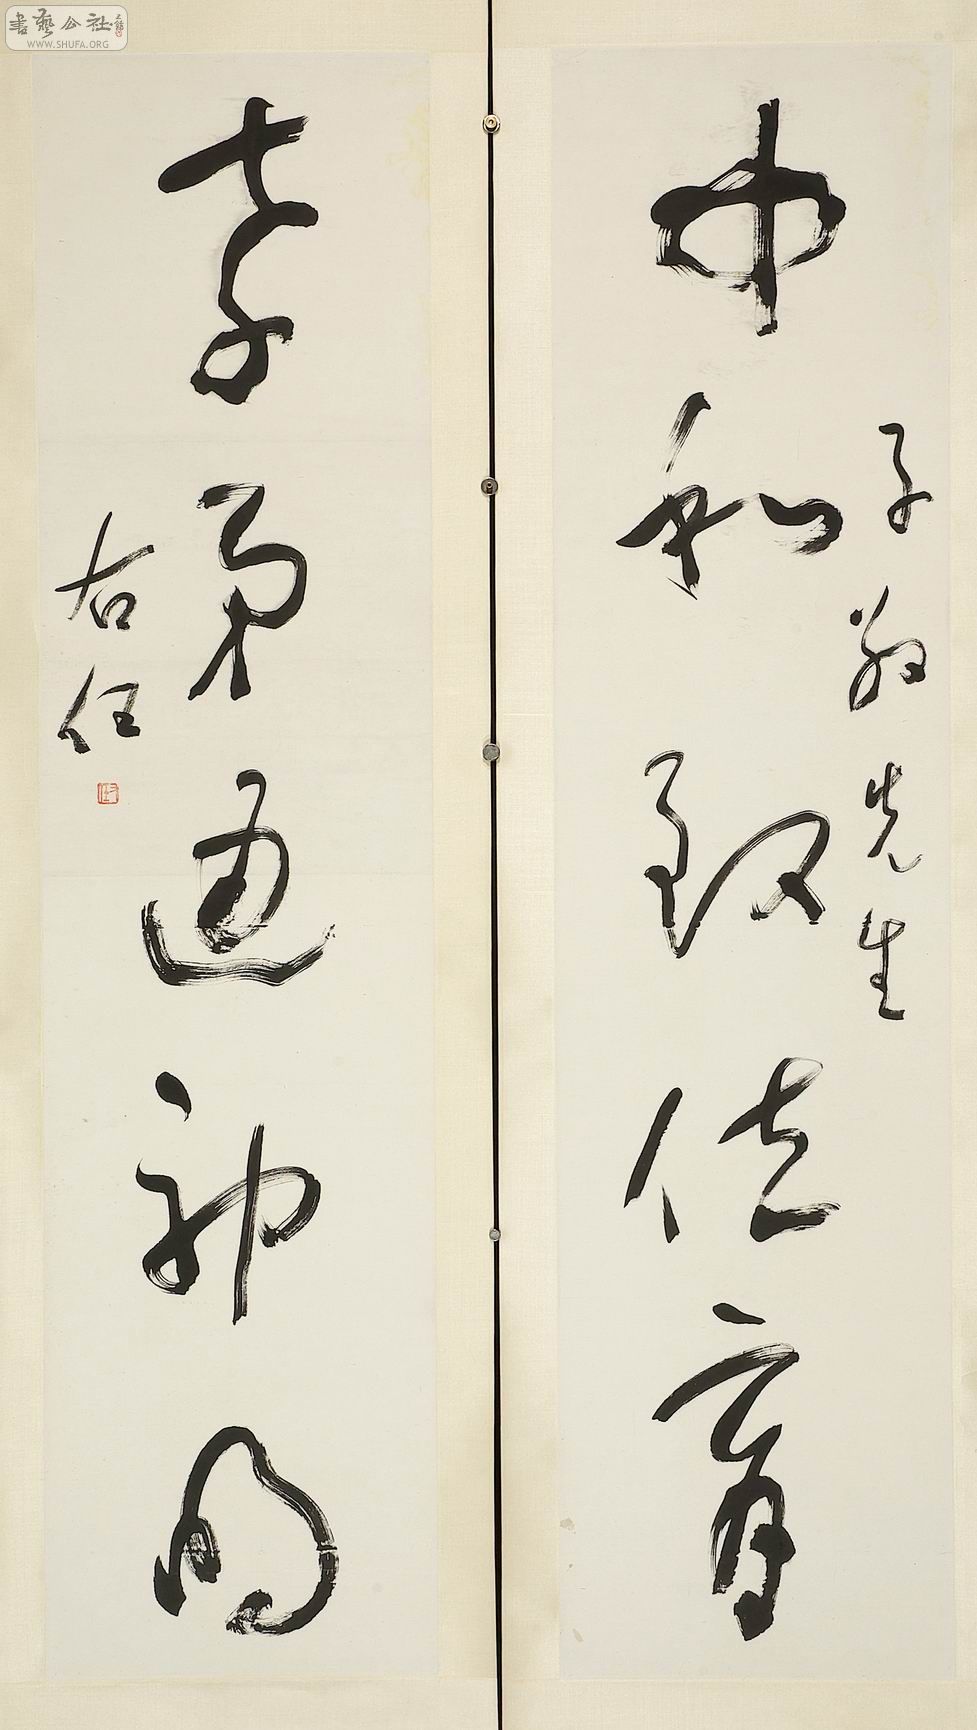 書藝公社
WWW.SHUFA.ORG
子 先生
中和致位育
孝弟通神明
右任